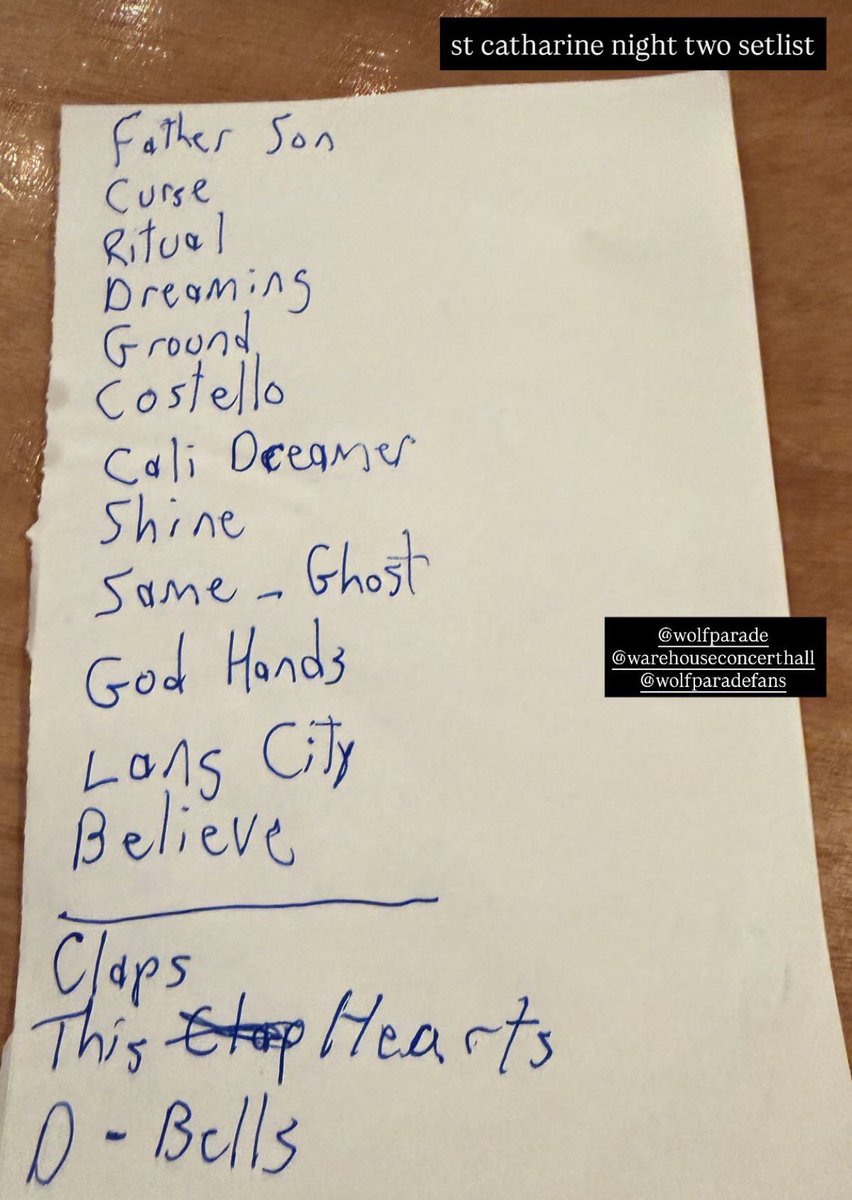 st catharine night two setlist
Father Son
Curse
Ritual
Dreaming
Ground
Costello
Cali Dreamer
Shine
Same - Ghost
God Hands
Lang City
Believe
@wolfparade
@warehouseconcerthall
@wolfparadefans
Claps
This Clap Hearts
D - Bells